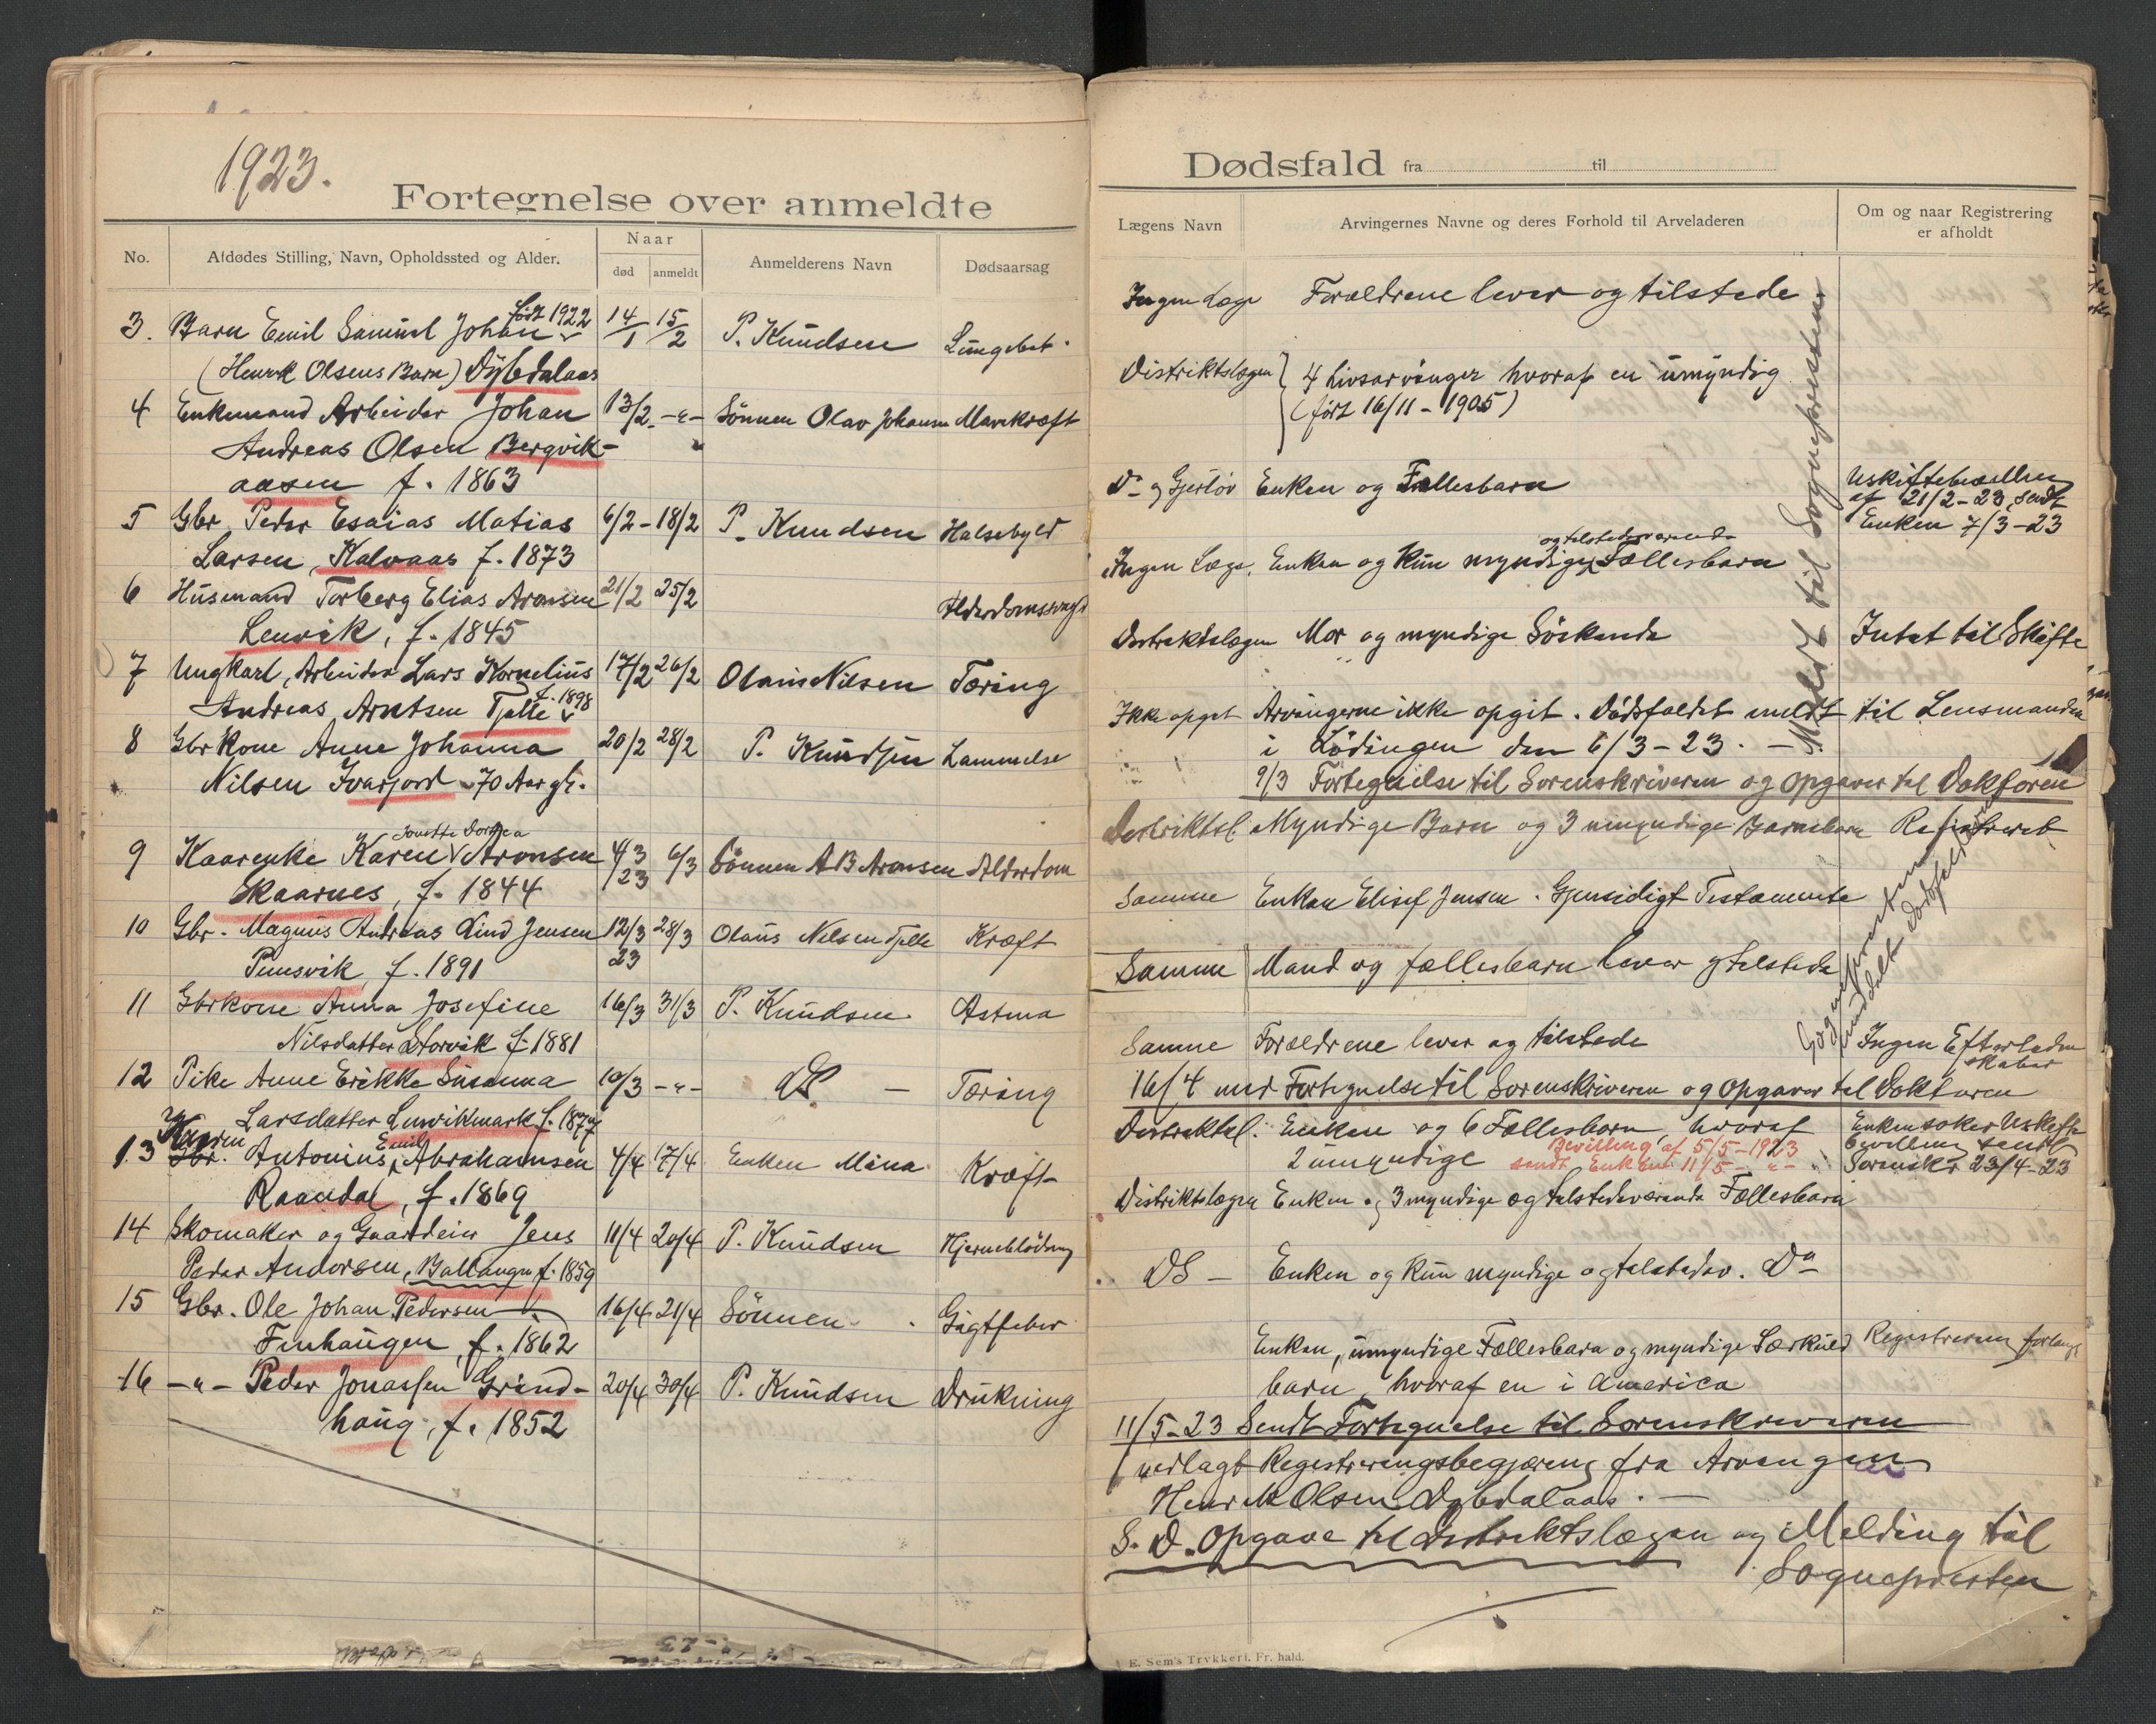 1923.
Fortegnelse over anmeldte
No.
Afdødes Stilling, Navn, Opholdssted og Alder.
Naar
død
anmeldt
Anmelderens Navn
Dødsaarsag
3. Barn Emil Samuel Johan født 1922 14/1 15/2 P. Knudsen Lungebet.
(Henrik Olsens Barn) Dybdalaas
4 Enkemand Arbeider Johan 13/2 -"- Sönnen Olav Johansen Mavekræft
Andreas Olsen Bergvik-
aasen f. 1863
5 Gbr. Peder Esaias Matias 6/2 - 18/2 P. Knudsen Halsebyld
Larsen, Kalvaas f. 1873
6 Husmand Torberg Elias Aronsen 21/2 25/2 Alderdomssvagh
Lenvik, f. 1845
7 Ungkarl, Arbeider Lars Kornelius 17/2 26/2 Olaus Nilsen Tæring
Andreas Arntsen Tjelle f. 1898
8 Gbr kone Anne Johanna 20/2 28/2 P. Knudsen Lammelse
Nilsen Ivarjord 70 Aar gl.
9 Kaarenke Karen Jonette Dortea Aronsen 4/3 23 6/3 Sönnen A B Aronsen Alderdom
Skaarnes, f. 1844
10 Gbr. Magnus Andreas Lind Jensen 12/3 23 28/3 Olaus Nilsen Tjelle Kræft
Punsvik, f. 1891
11 Gbrkone Anna Josefine 16/3 31/3 P. Knudsen Astma
Nilsdatter Storvik f. 1881
12 Pike Anne Erikke Susanna 10/3 -"- DS - Tæring
Larsdatter Lenvikmark f. 1877
13 Kaarm Gbr. Antonius Emil Abrahamsen 4/4 17/4 Enken Mina Kræft
Raandal, f. 1869
14 Skomaker og Gaardeier Jens 11/4 20/4 P. Knudsen Hjerneblödning
Peder Andersen, Ballangen f. 1859
15 Gbr. Ole Johan Pedersen 16/4 21/4 Sönnen Gigtfeber
Finhaugen, f. 1862
16 -"- Peder Jonassen Grind- 20/4 30/4 P. Knudsen Drukning
haug, f. 1852
Dødsfald fra til
Lægens Navn
Arvingernes Navne og deres Forhold til Arveladeren
Om og naar Registrering
er afholdt
Ingen Læge Forældrene lever og tilstede
Distriktslægen 4 Livsarvinger hvoraf en umyndig
(født 16/11 - 1905)
Do og Gjerlöv Enken og Fællesbarn Uskiftebevilling
af 21/2-23, sendt
Enken 7/3-23
og tilstedeværende
Ingen Læge. Enken og kun myndige Fællesbarn
Distriktslægen Mor og myndige Söskende Intet til Skifte
Ikke opget Arvingerne ikke opgit. Dödsfaldet meldt til Lensmanden
i Lödingen den 6/3-23. -
Meldt til Sognepresten
9/3 Fortegnelse til Sorenskriveren og Opgaver til Doktoren
Distriktsl. Myndige Barn og 3 umyndige Barnebarn Registreret
Samme Enken Elisef Jensen. Gjensidigt Testamente
Samme Mand og fællesbarn lever og tilstede
Sognepresten
Samme Forældrene lever og tilstede Ingen Efterladen
skaber
16/4 med Fortegnelse til Sorenskriveren og Opgaver til Doktoren
Distriktsl. Enken og 6 Fællesbarn, hvoraf Enken soker Uskifte
2 umyndige Bevilling af 5/5-1923 bevilling sendt
sendt Enken 11/5 - "- Sorenskr 23/4-23
Distriktslægen Enken og 3 myndige og tilstedeværende Fællesbarn
DS - Enken og kun myndige og tilstedev. Do
Enken, umyndige Fællesbarn og myndige Særkuld Registrering forlangt
barn, hvoraf en i America
11/5-23 Sendt Fortegnelse til Sorenskriveren
vedlagt Registreringsbegjæring fra Arvingen
Henrik Olsen Dybdalaas. -
S. D. Opgave til Distriktslægen og Melding til
Sognepresten
E. Sem's Trykkeri, Fr. hald.